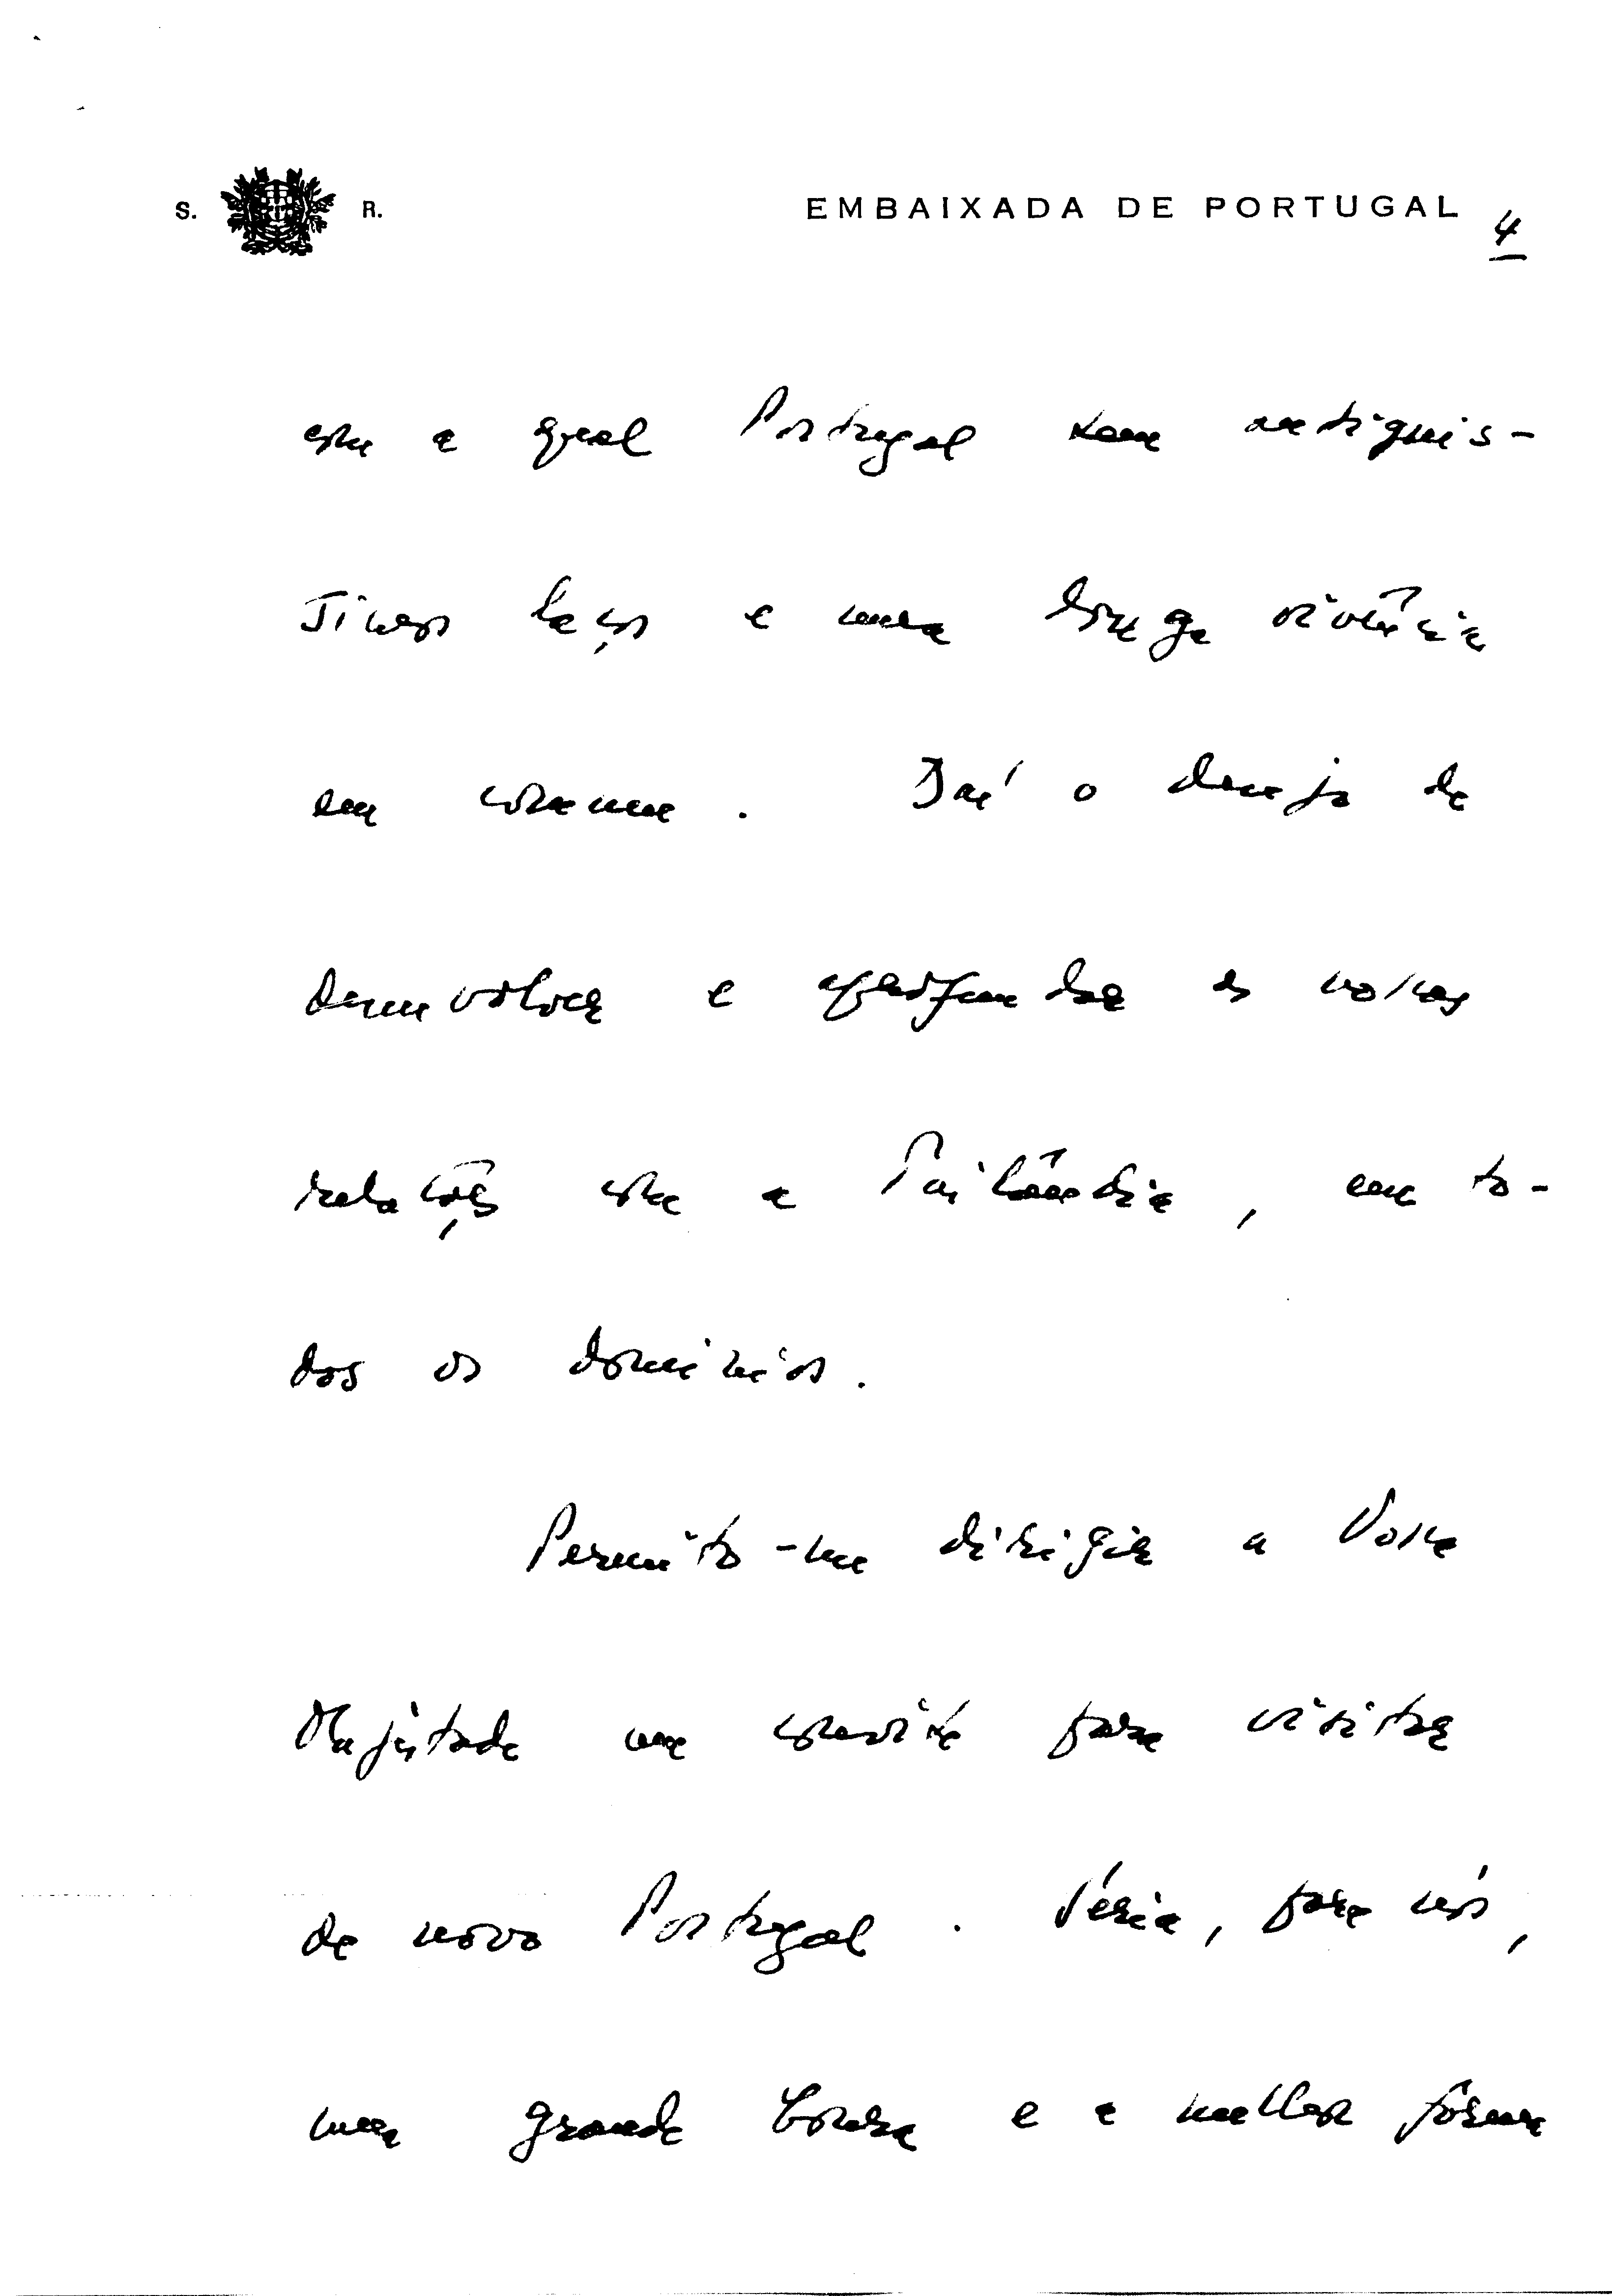 S. R.
EMBAIXADA DE PORTUGAL 4
com a qual Portugal tem antiguis-
simos laços e uma longa história
em comum. Daí o desejo de
desenvolver e aprofundar as nossas
relações com a Tailândia, em to-
dos os domínios.
Permito-me dirigir a Vossa
Majestade um convite para visitar
de novo Portugal. Seria, para nós,
uma grande honra e a melhor forma